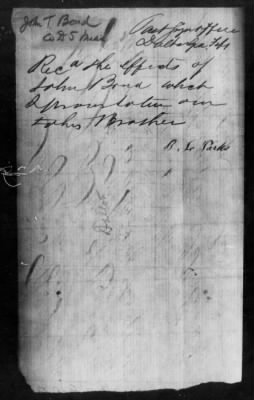 John T. Bond
Co D 5 Miss
Post Surg Office
Dalton Ga Feb 1
Recd the effects of
John Bond which
I promise to turn over
to his Brother
R. L. Parks